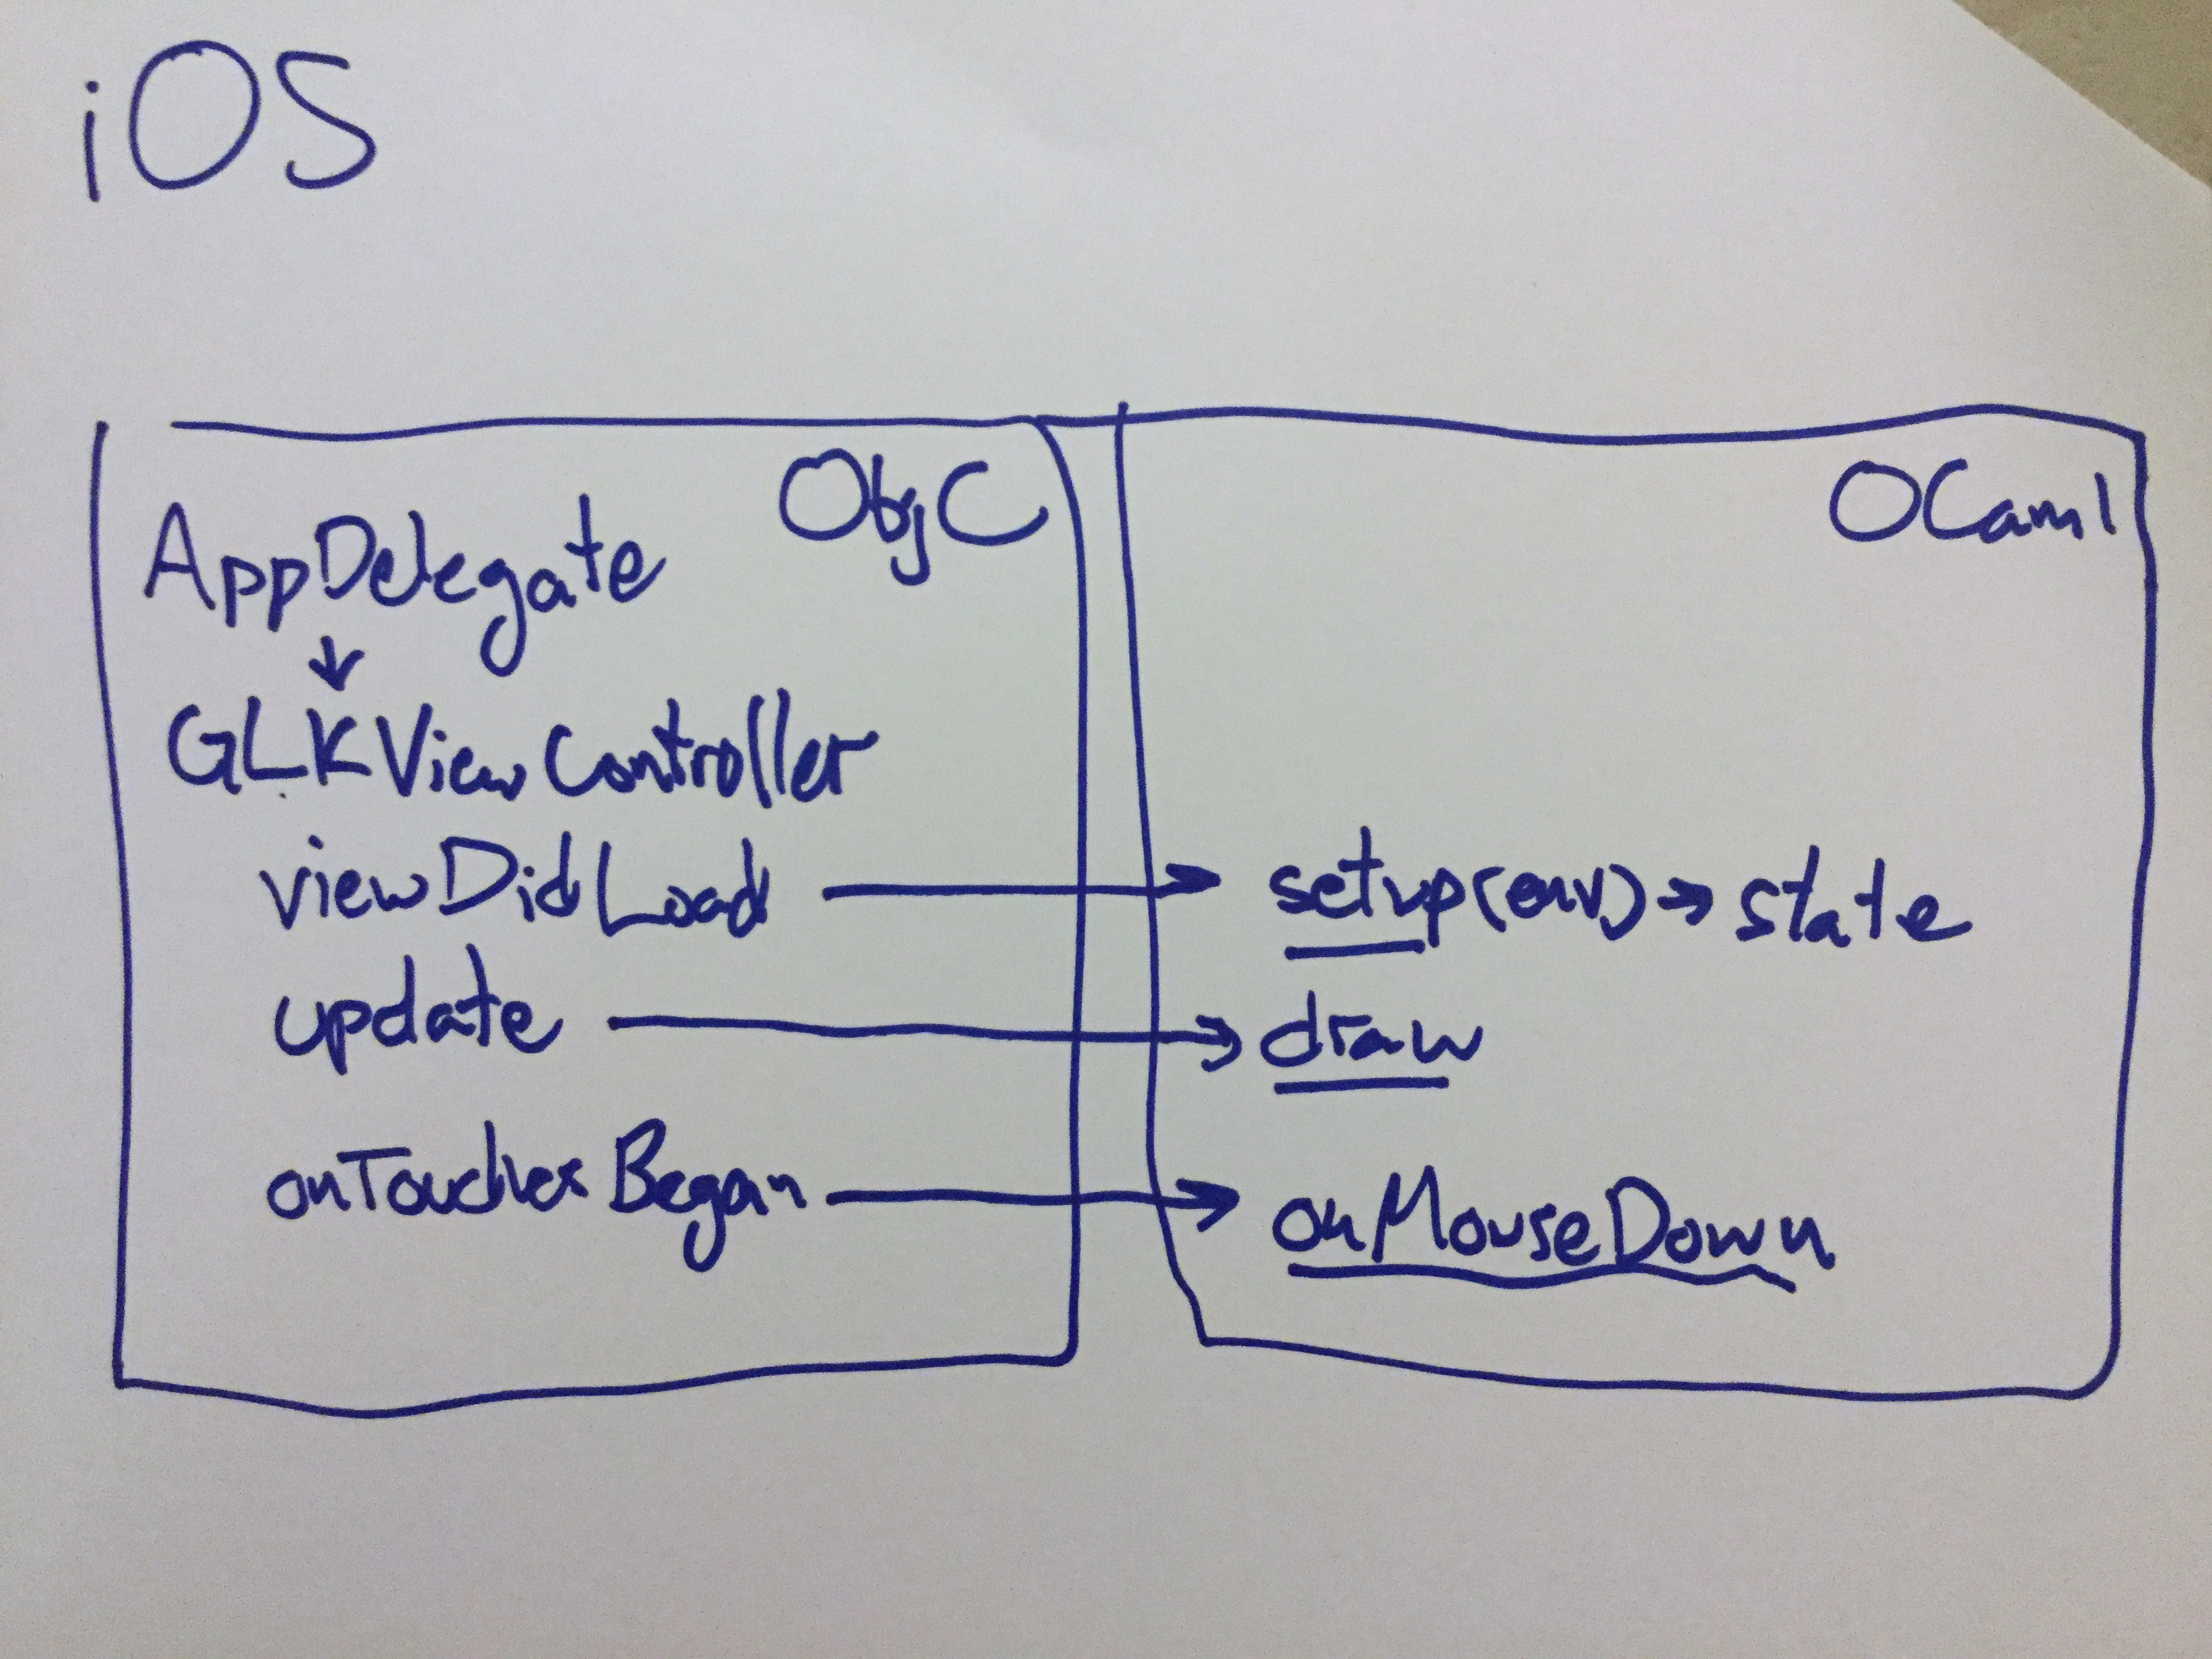 iOS
ObjC
AppDelegate
↓
GLKViewController
viewDidLoad →
update →
onTouchesBegan →
OCaml
setup(env) → state
draw
onMouseDown